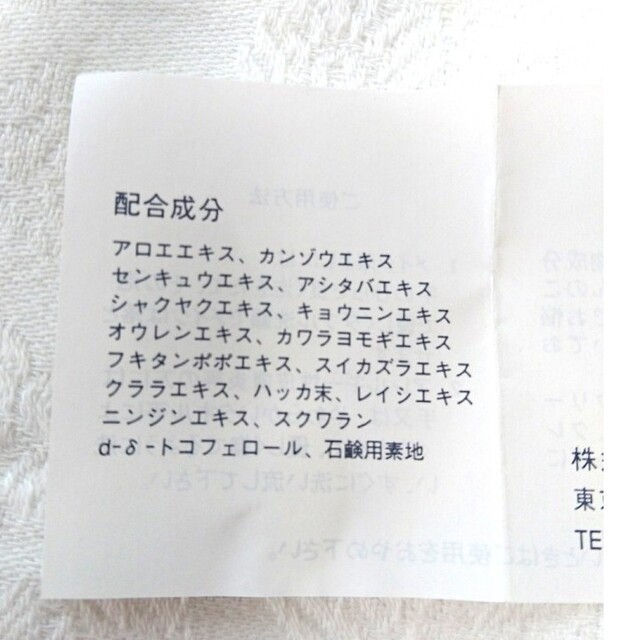 配合成分
アロエエキス、カンゾウエキス
センキュウエキス、アシタバエキス
シャクヤクエキス、キョウニンエキス
オウレンエキス、カワラヨモギエキス
フキタンポポエキス、スイカズラエキス
クララエキス、ハッカ末、レイシエキス
ニンジンエキス、スクワラン
d-δ-トコフェロール、石鹸用素地
株
東京
TE